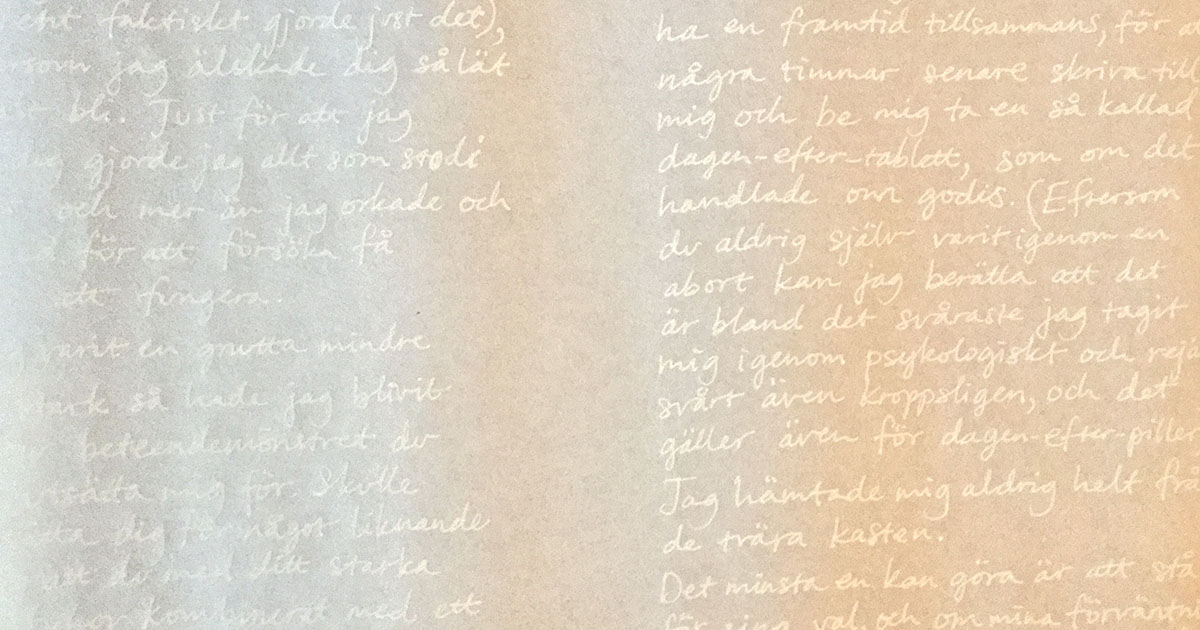 faktiskt gjorde just det),
jag älskade dig så lät
bli. Just för att jag
gjorde jag allt som stod i
och mer än jag orkade och
för att försöka få
att fungera.
varit en gnutta mindre
stark så hade jag blivit
beteendemönstret du
utsatta mig för. Skulle
dig för något liknande
att du med ditt starka
kombinerat med ett
ha en framtid tillsammans, för
några timmar senare skriva till
mig och be mig ta en så kallad
dagen-efter-tablett, som om det
handlade om godis. (Eftersom
du aldrig själv varit igenom en
abort kan jag berätta att det
är bland det svåraste jag tagit
mig igenom psykologiskt och
svårt även kroppsligen, och det
gäller även för dagen-efter-piller
Jag hämtade mig aldrig helt från
de tvära kasten.
Det minsta en kan göra är att stå
för sina val, och om mina